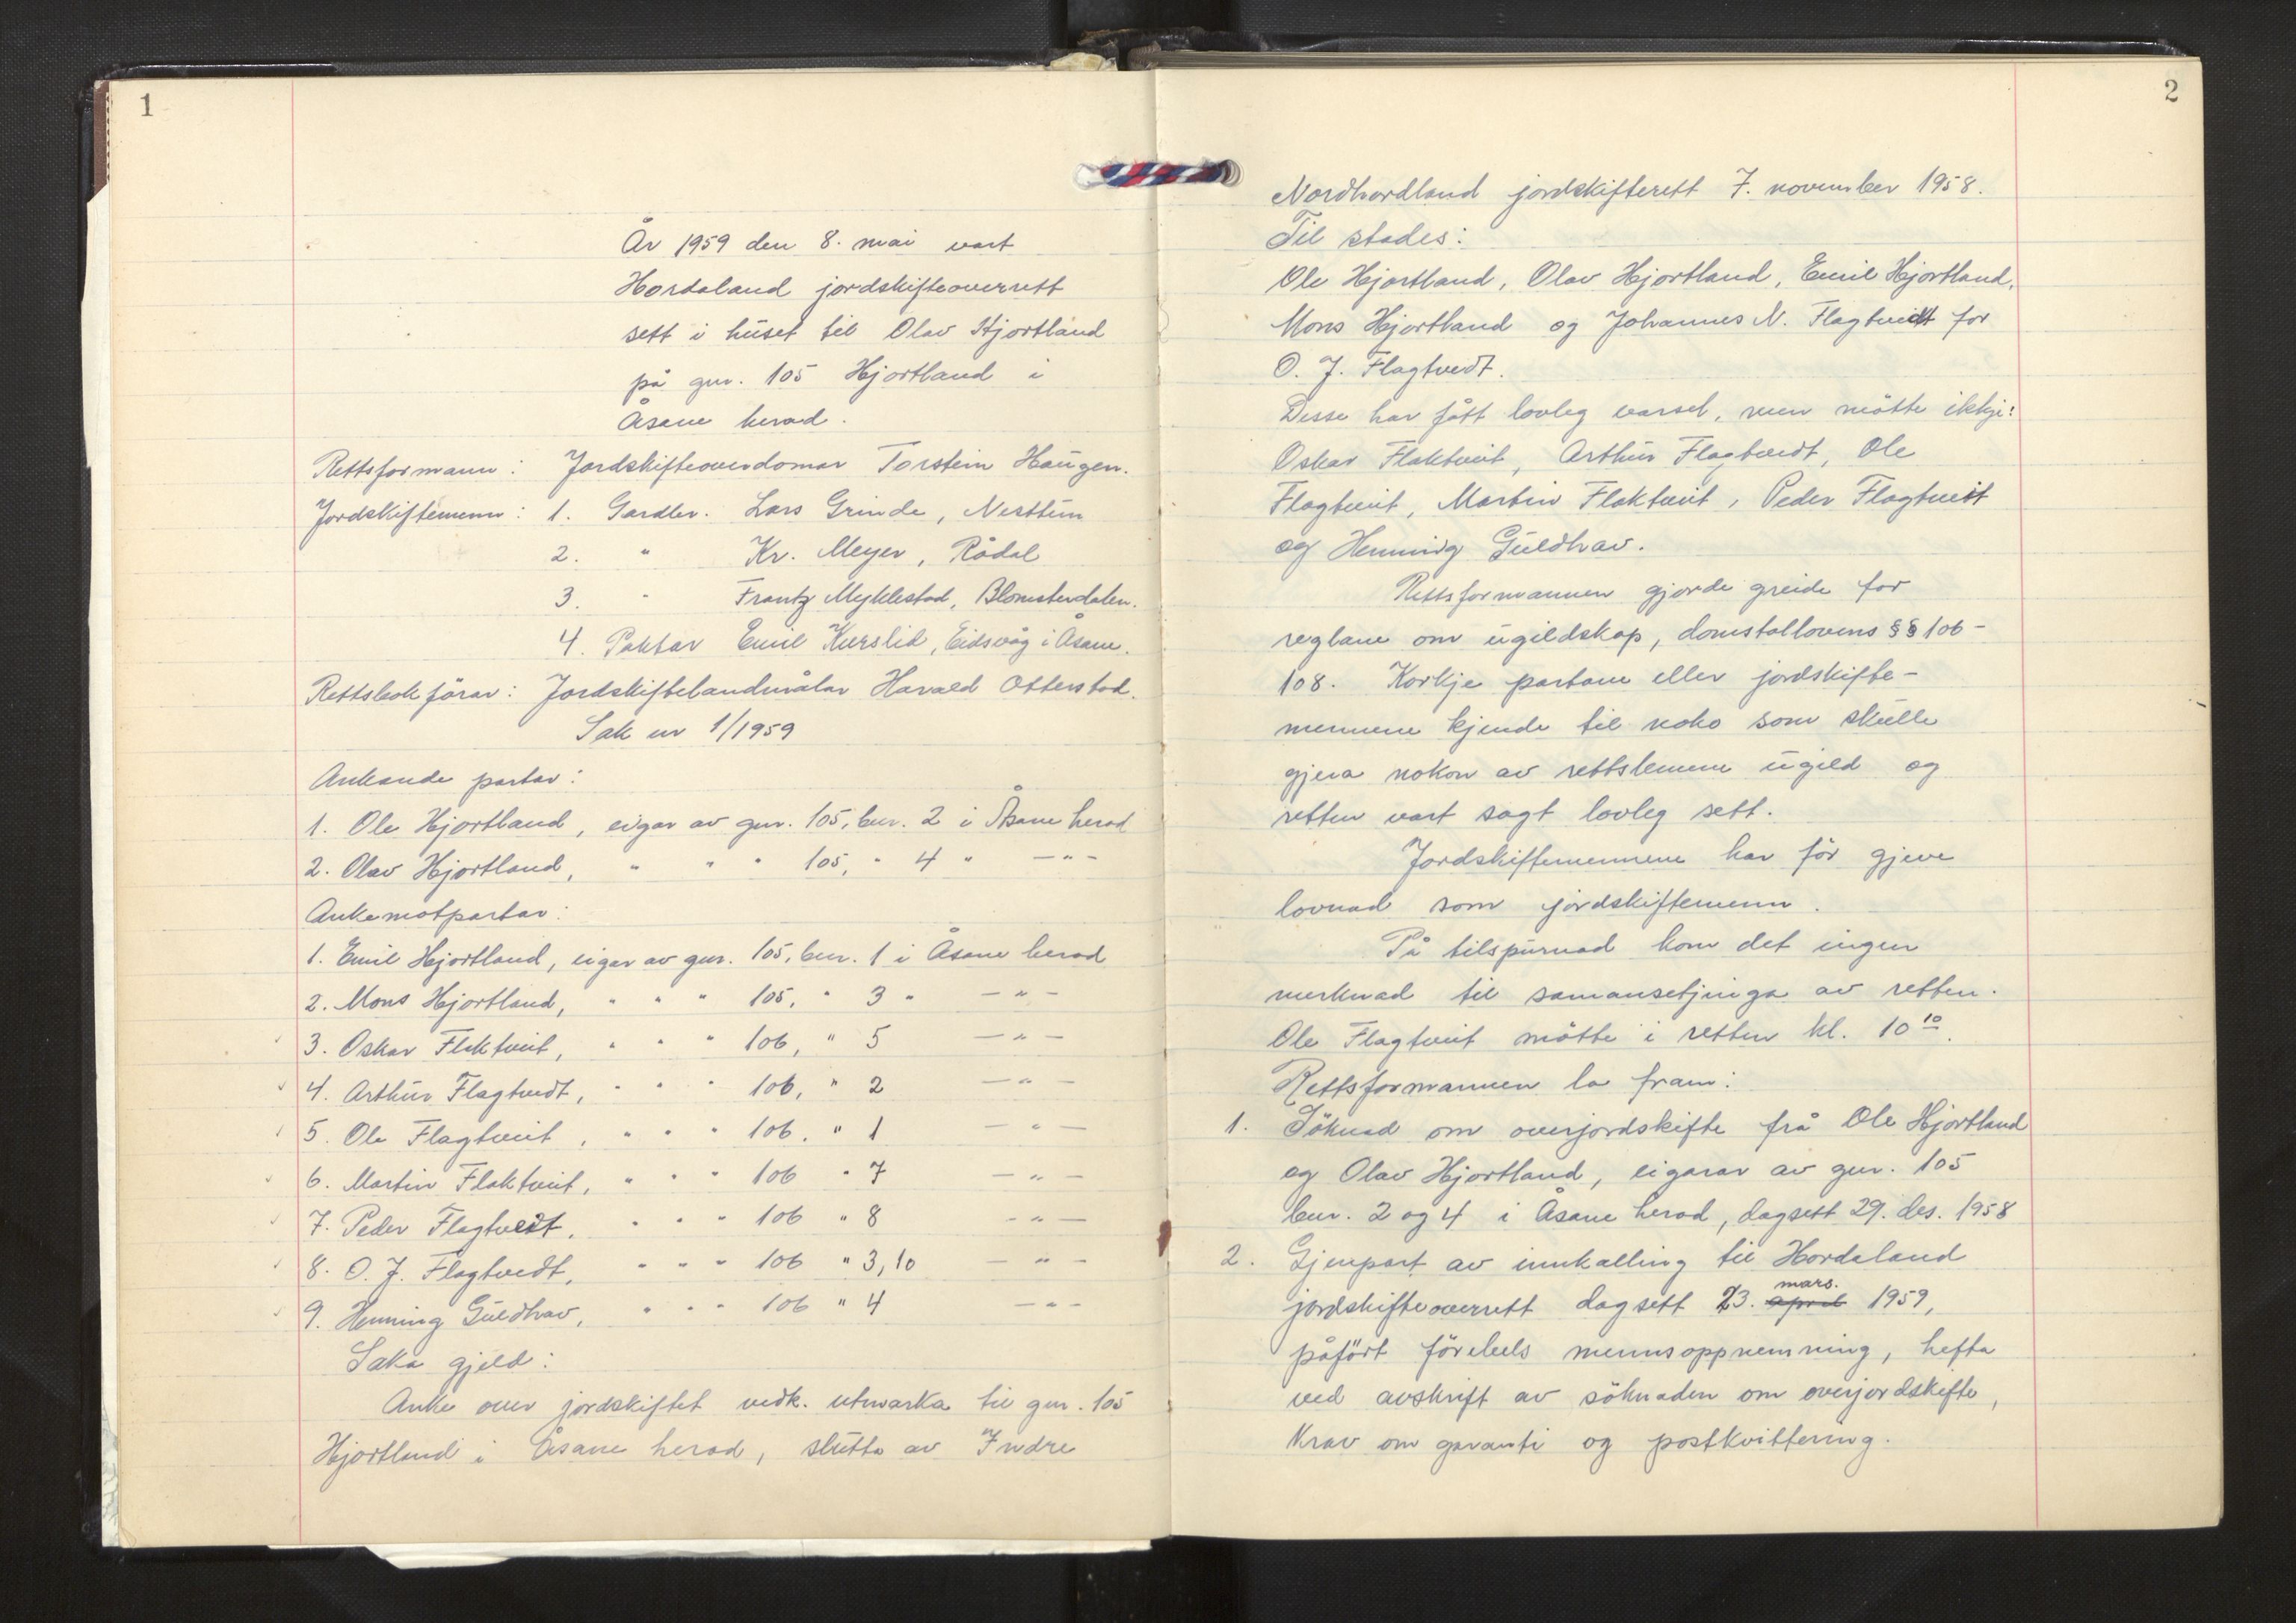 1
År 1959 den 8. mai vart
Hordaland jordskifteoverrett
sett i huset til Olav Hjortland
på gnr. 105 Hjortland i
Åsane herad.
Rettsformann: Jordskifteoverdomar Torstein Haugen.
Jordskiftemenn: 1. Gardbr. Lars Grinde, Nesttun
2. " Kr. Meyer, Rådal
3. " Frantz Myklestad, Blomsterdalen.
4. Paktar Emil Kurslid, Eidsvåg i Åsane.
Rettsbokförar: Jordskiftelandmålar Harald Otterstad.
Sak nr 1/1959
Ankande partar:
1. Ole Hjortland, eigar av gnr. 105, bnr. 2 i Åsane herad
2. Olav Hjortland, " " " 105, " 4 " —"—
Ankemotpartar:
1. Emil Hjortland, eigar av gnr. 105, bnr. 1 i Åsane herad
2. Mons Hjortland, " " " 105, " 3 " —"—
3. Oskar Flaktveit, " " " 106, " 5 —"—
4. Arthur Flagtvedt, " " " 106, " 2 —"—
5. Ole Flagtveit, " " " 106, " 1 —"—
6. Martin Flaktveit, " " " 106 " 7 —"—
7. Peder Flagtvedt, " " " 106 " 8 —"—
8. O. J. Flagtvedt, " " " 106 " 3, 10 —"—
9. Henning Guldhav, " " " 106 " 4 —"—
Saka gjeld:
Anke over jordskiftet vedk. utmarka til gnr. 105
Hjortland i Åsane herad, slutta av Indre
2
Nordhordland jordskifterett 7. november 1958.
Til stades:
Ole Hjortland, Olav Hjortland, Emil Hjortland,
Mons Hjortland og Johannes N. Flagtvedt for
O. J. Flagtvedt.
Desse har fått lovleg varsel, men mötte ikkje:
Oskar Flaktveit, Arthur Flagtvedt, Ole
Flagtveit, Martin Flaktveit, Peder Flagtveit
og Henning Guldhav.
Rettsformannen gjorde greide for
reglane om ugildskap, domstollovens §§ 106-
108. Korkje partane eller jordskifte-
mennene kjende til noko som skulle
gjera nokon av rettslemene ugild og
retten vart sagt lovleg sett.
Jordskiftemennene har för gjeve
lovnad som jordskiftemenn.
På tilspurnad kom det ingen
merknad til samansetjinga av retten.
Ole Flagtveit mötte i retten kl. 10 10.
Rettsformannen la fram:
1. Söknad om overjordskifte frå Ole Hjortland
og Olav Hjortland, eigarar av gnr. 105
bnr. 2 og 4 i Åsane herad, dagsett 29. des. 1958
2. Gjenpart av innkalling til Hordaland
jordskifteoverrett dagsett 23. april mars. 1959,
påfört förebels mennsoppnemning, hefta
ved avskrift av söknaden om overjordskifte,
krav om garanti og postkvittering.